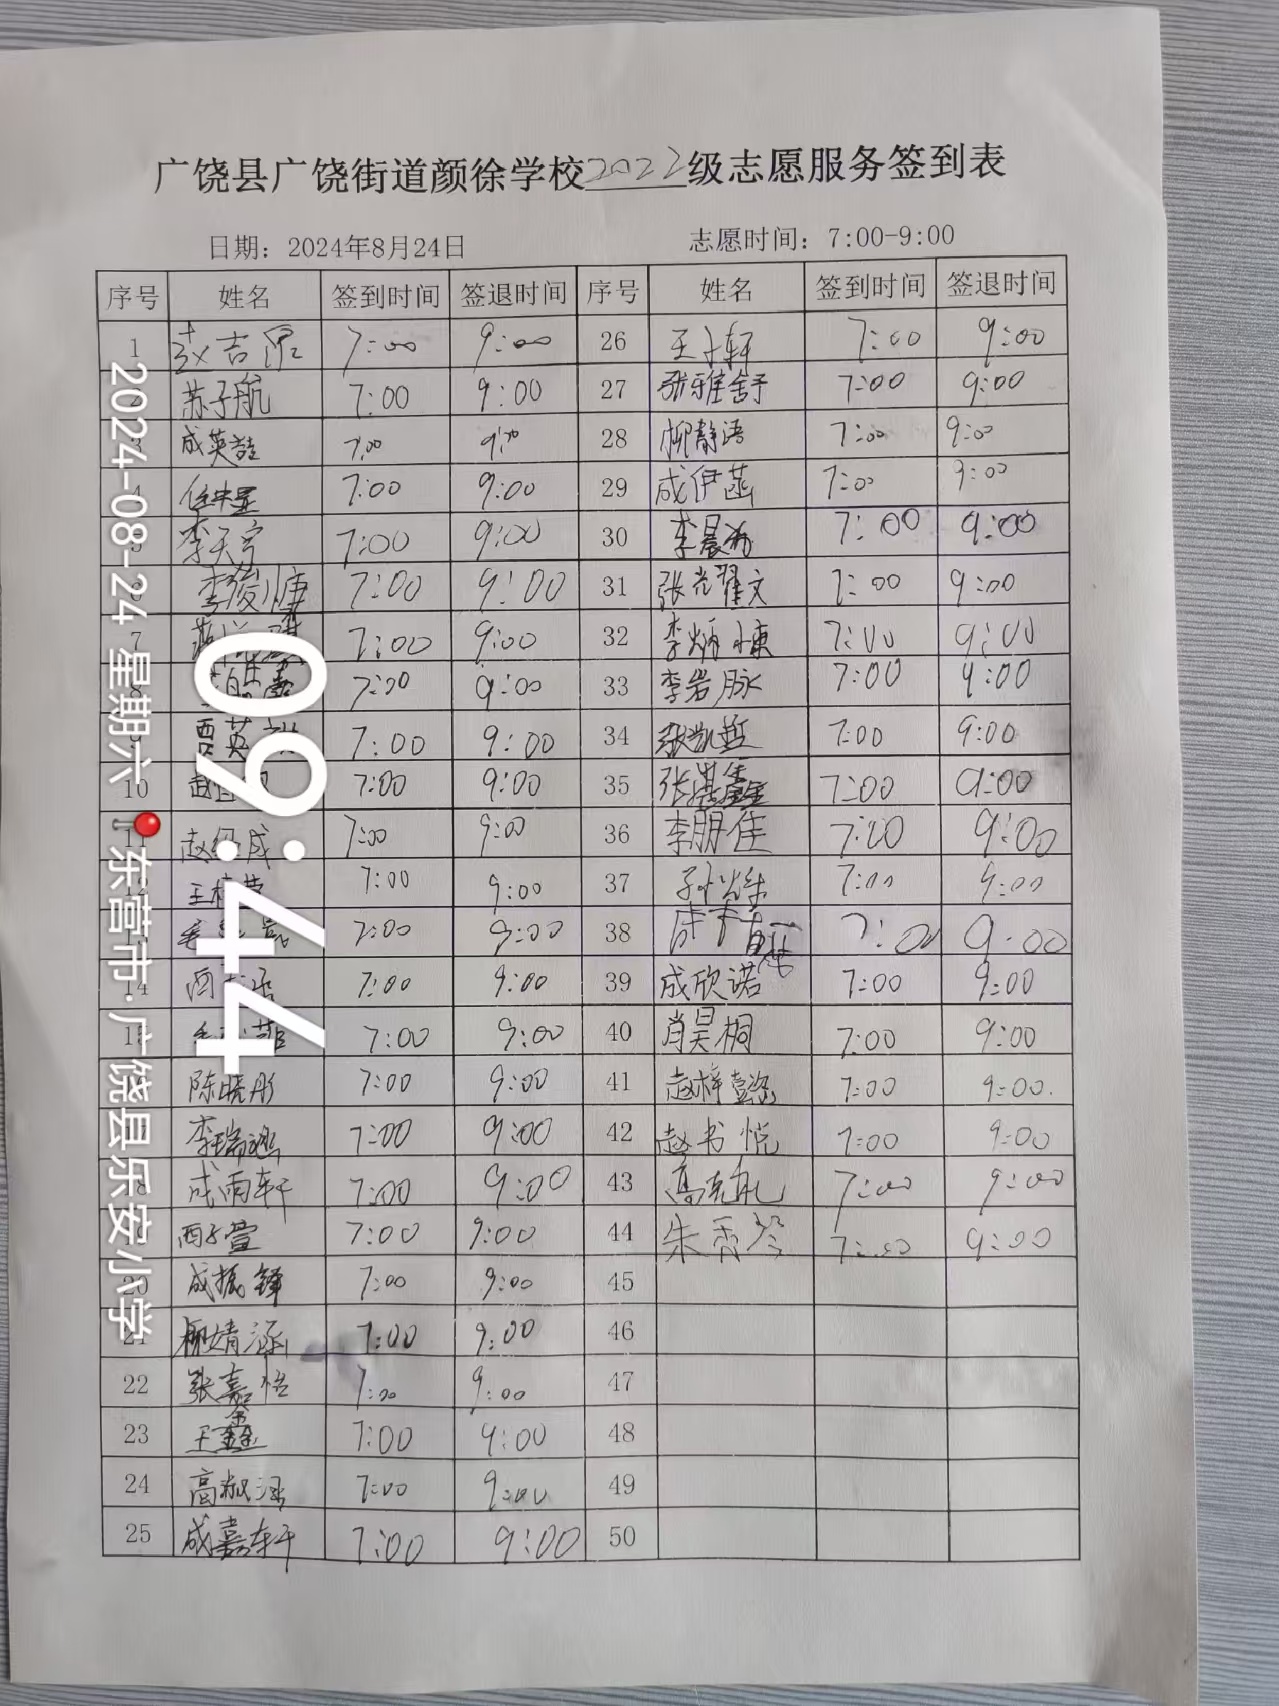 广饶县广饶街道颜徐学校2022级志愿服务签到表
日期：2024年8月24日 志愿时间：7:00-9:00
序号 姓名 签到时间 签退时间 序号 姓名 签到时间 签退时间
1 7:00 9:00 26 王子轩 7:00 9:00
苏子航 7:00 9:00 27 张雅舒 7:00 9:00
成英喆 7:00 9:00 28 柳静语 7:00 9:00
7:00 9:00 29 成伊菡 7:00 9:00
李天宇 7:00 9:00 30 李晨 7:00 9:00
李俊慷 7:00 9:00 31 张光耀文 7:00 9:00
7 7:00 9:00 32 李炳慷 7:00 9:00
7:00 9:00 33 李岩脉 7:00 9:00
贾英 7:00 9:00 34 张凯哲 7:00 9:00
10 7:00 9:00 35 张淇鑫 7:00 9:00
赵 成 7:00 9:00 36 李朋佳 7:00 9:00
王 7:00 9:00 37 7:00 9:00
7:00 9:00 38 成 7:00 9:00
14 西 7:00 9:00 39 成欣诺 7:00 9:00
7:00 9:00 40 肖昊桐 7:00 9:00
陈晓彤 7:00 9:00 41 赵梓懿 7:00 9:00
李瑞涵 7:00 9:00 42 赵书悦 7:00 9:00
成雨轩 7:00 9:00 43 高克航 7:00 9:00
西子萱 7:00 9:00 44 朱秀琴 7:00 9:00
20 成振铎 7:00 9:00 45
21 柳婧涵 7:00 9:00 46
22 张嘉怡 7:00 9:00 47
23 王鑫 7:00 9:00 48
24 高淑涵 7:00 9:00 49
25 成嘉轩 7:00 9:00 50
09:44
2024-08-24 星期六
东营市·广饶县乐安小学